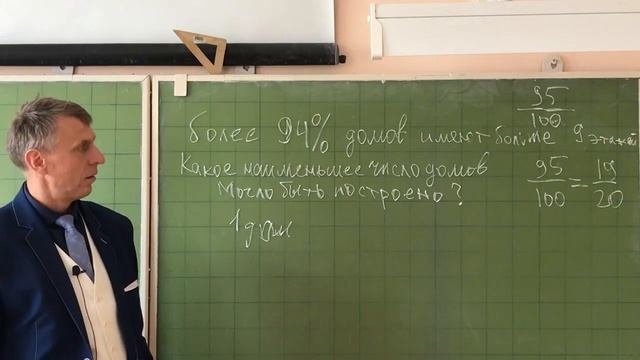 Более 94% домов имеют больше 9 этажей
Какое наименьшее число домов
Могло быть построено?
1 дом
95/100
95/100 = 19/20